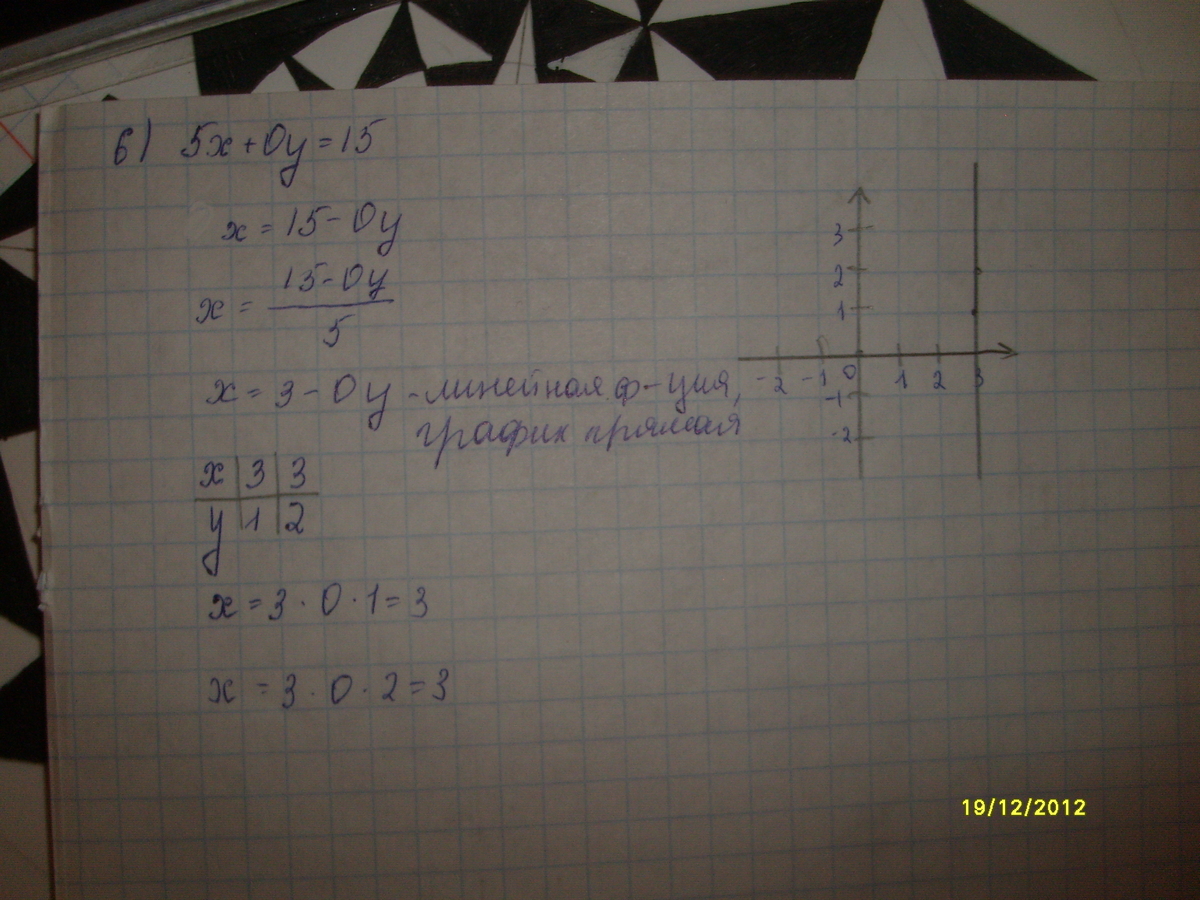 6) 5x+0y=15
x=15-0y
x=15-0y/5
x=3-0y-линейная ф-ция,
график прямая
x 3 3
y 1 2
x=3·0·1=3
x=3·0·2=3
3
2
1
-2 -1 0 1 2 3
-1
-2
19/12/2012